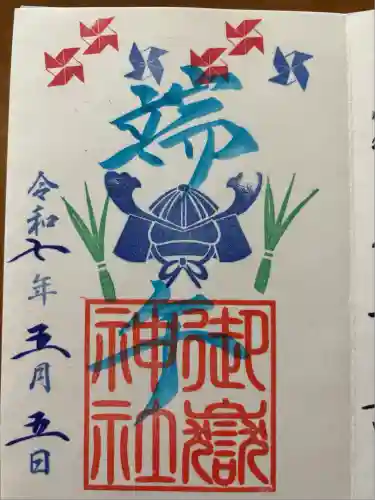 端午
御嶽
神社
令和七年五月五日